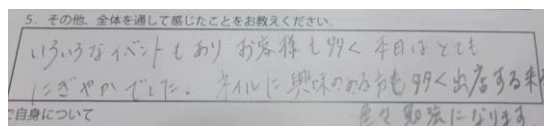 5. その他、全体を通して感じたことをお教えください。
いろいろなイベントもあり お客様も多く 本日はとても
にぎやかでした。 ネイルに興味のある方も多く出店する来
色々勉強になります
ご自身について